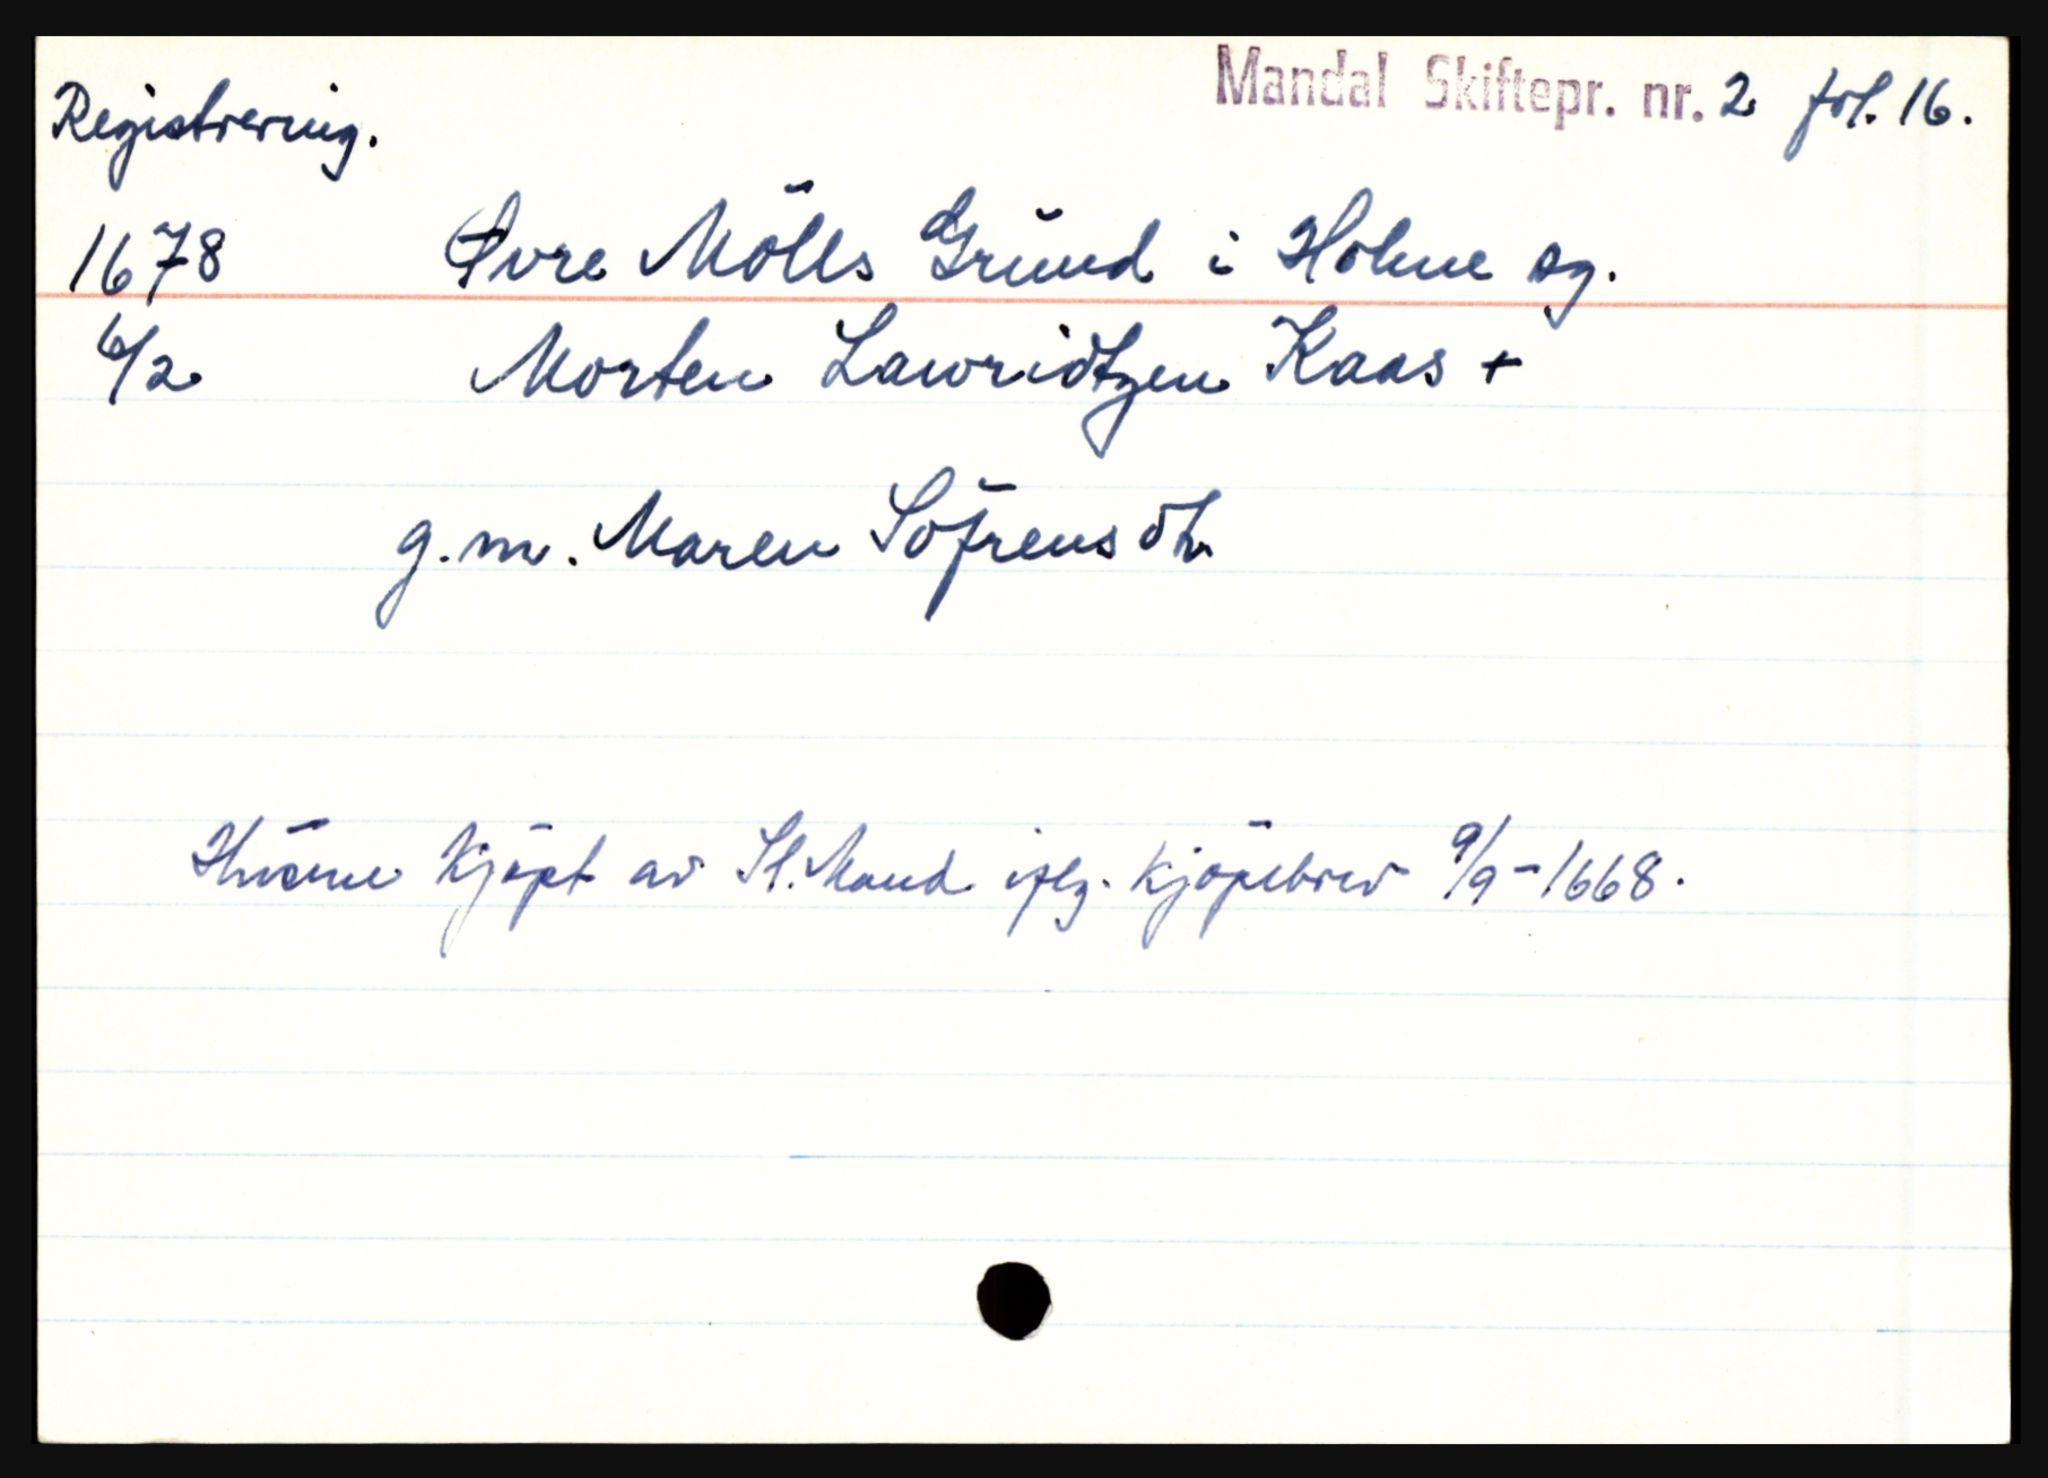 Mandal Skiftepr. nr. 2 fol. 16.
Registrering.
1678 Øvre Mölls Grund i Holme sg.
6/2 Morten Lawridtzen Kaas +
g. m. Maren Söfrensdtr
Kjöpt av Sl. Mand iflg. kjöpebrev 9/9-1668.